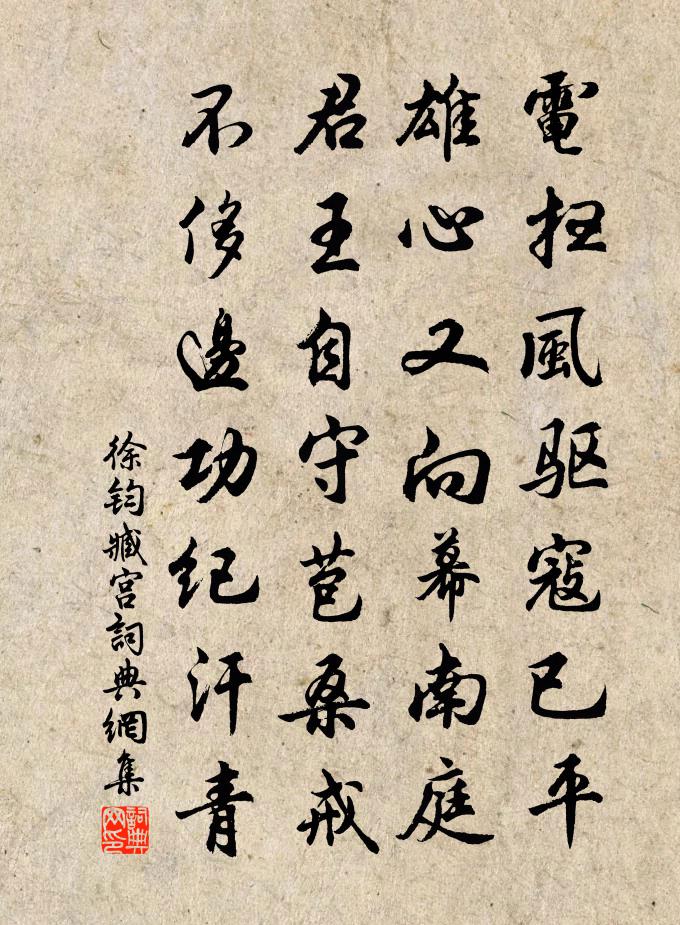 電扫風驱寇已平
雄心又向幕南庭
君王自守苞桑戒
不侈邊功纪汗青
徐钧臧宫詞典網集
詞典网印